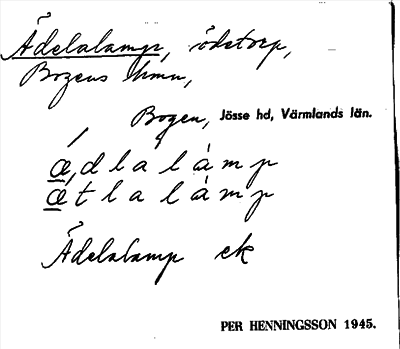 Ädelalamp, ödetorp,
Bogens hmn,
Bogen, Jösse hd, Värmlands län.
ǽdlalàmp
ǽtlalàmp
Ädelalamp ek
PER HENNINGSSON 1945.